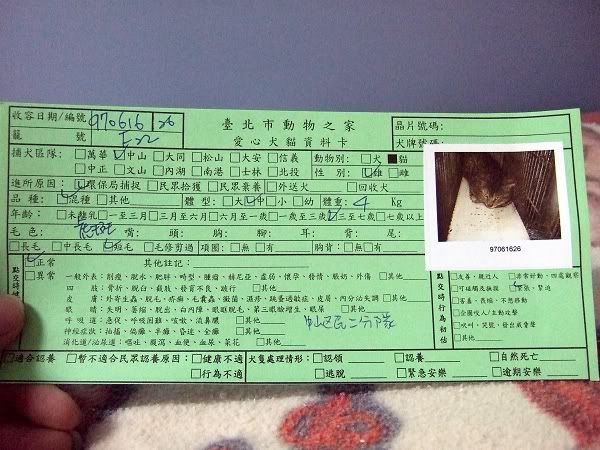 收容日期/編號 970616 26
臺北市動物之家
晶片號碼:
籠 號 E22
愛心犬貓資料卡
犬牌號碼:
捕犬區隊: □萬華 □中山 □大同 □松山 □大安 □信義 動物別: □犬 ■貓
□中正 □文山 □內湖 □南港 □士林 □北投 性別: □雄 □雌
進所原因: □環保局捕捉 □民眾拾獲 □民眾棄養 □外送火 □回收犬
品種: □混種 □其他 體型: □大□中□小 體重: 4 Kg
年齡: □未離乳 □一至三月□三月至六月□六月至一歲□一歲至三歲□三至七歲□七歲以上
毛色: 虎斑 嘴: 頭: 腳: 耳: 背: 尾:
□長毛 □中長毛 □短毛 □毛修剪過 項圈: □無 □有 胸背: □無 □有
97061626
□正常 其他註記:
□異常
一般外表: 削瘦、脫水、肥胖、畸型、腫瘤、赫尼亞、虛弱、懷孕、發情、脹奶、外傷 □其他
四 肢: 骨折、脫臼、截肢、發育不良、跛行 □其他
皮 膚: 外寄生蟲、脫毛、疥癬、毛囊蟲、黴菌、濕疹、跳蚤過敏症、皮屑、內分泌失調 □其他
眼 睛: 失明、萎縮、脫出、白內障、眼瞼脫毛、第三眼瞼增生、眼屎 □其他
呼 吸 道: 急促、呼吸困難、咳嗽、流鼻膿 □其他
神經症狀: 抽搐、偏癱、半癱、昏迷、全癱 □其他
消化道/泌尿道: 嘔吐、腹瀉、血便、血尿、菜花 □其他
中山區民二分隊
點交時行為初估
□友善、親近人 □非常好動、四處觀察
□可碰觸及操控 □緊張、緊迫
□害羞、畏縮、不想移動
□企圖咬人/主動攻擊
□吠叫、哭號、發出威脅聲
□其他
□適合認養 □暫不適合民眾認養原因: □健康不適 犬隻處理情形: □認領 □認養 □自然死亡
□行為不適 □逃脫 □緊急安樂 □逾期安樂